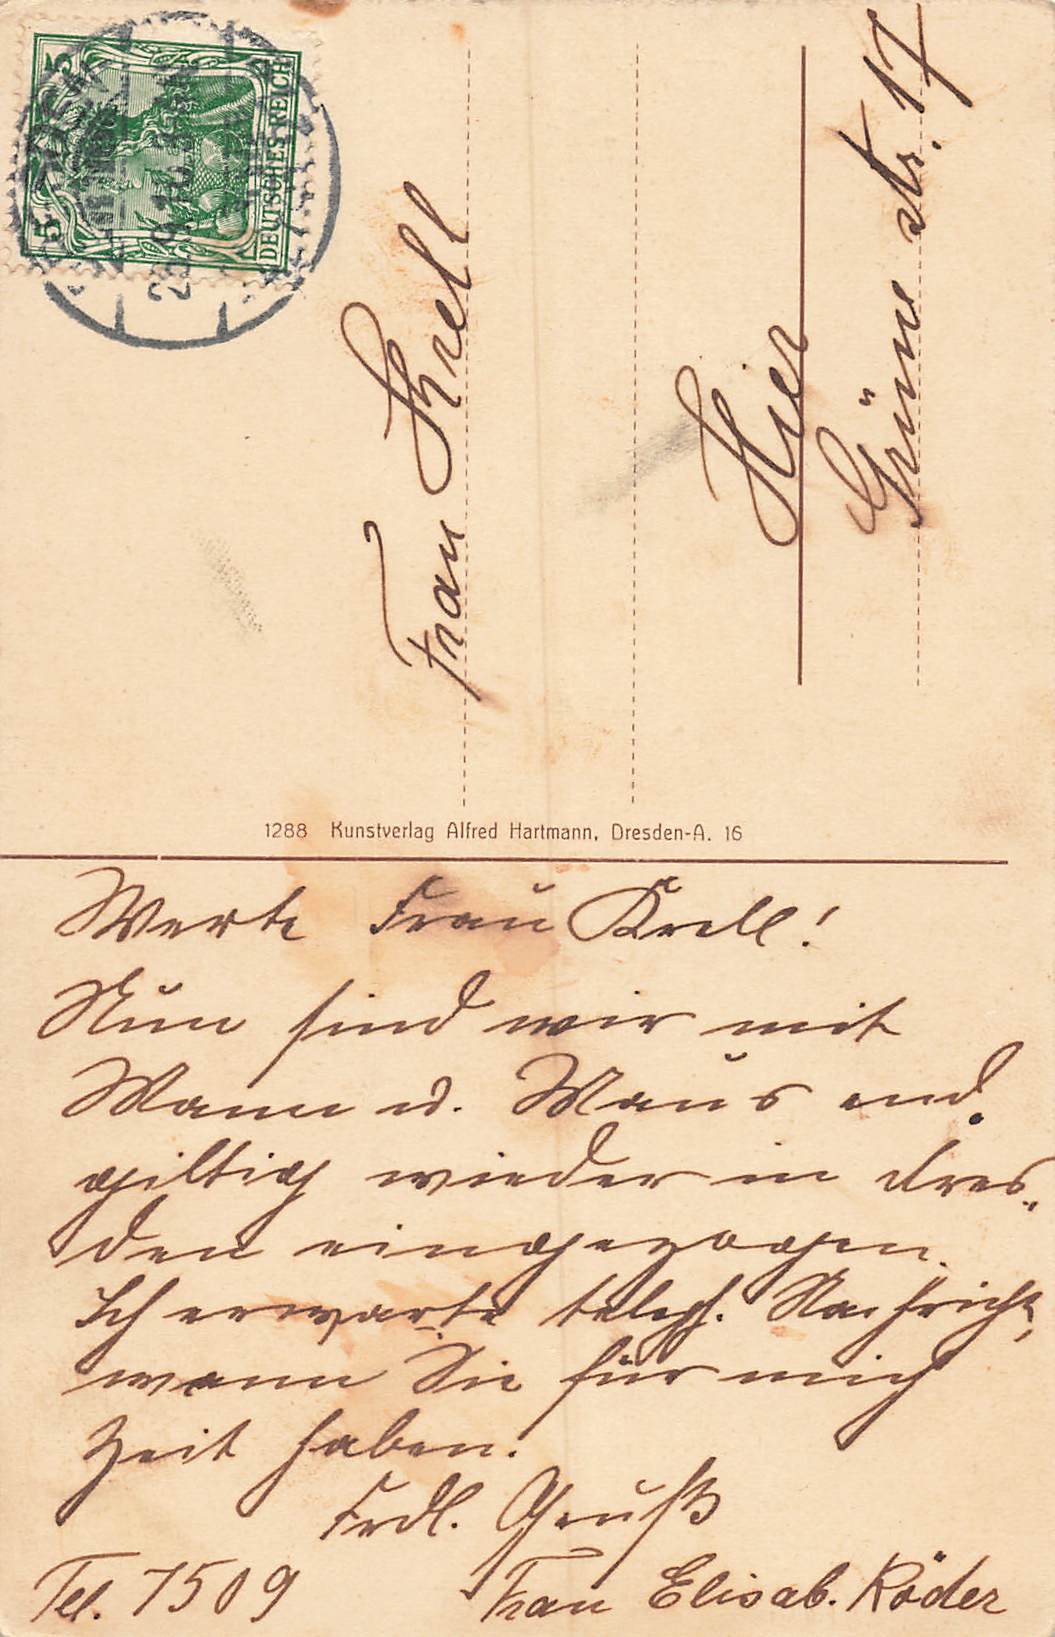 5 5
DEUTSCHES REICH
Frau Krell
Hier
Grüne str. 17
1288 Kunstverlag Alfred Hartmann, Dresden-A. 16
Werte Frau Krell!
Nun sind wir mit
Mann u. Maus end
giltig wieder in Dres-
den eingezogen.
Ich erwarte teleph. Nachricht,
wann Sie für mich
Zeit haben.
Frdl. Gruß
Tel. 7509 Frau Elisab. Röder